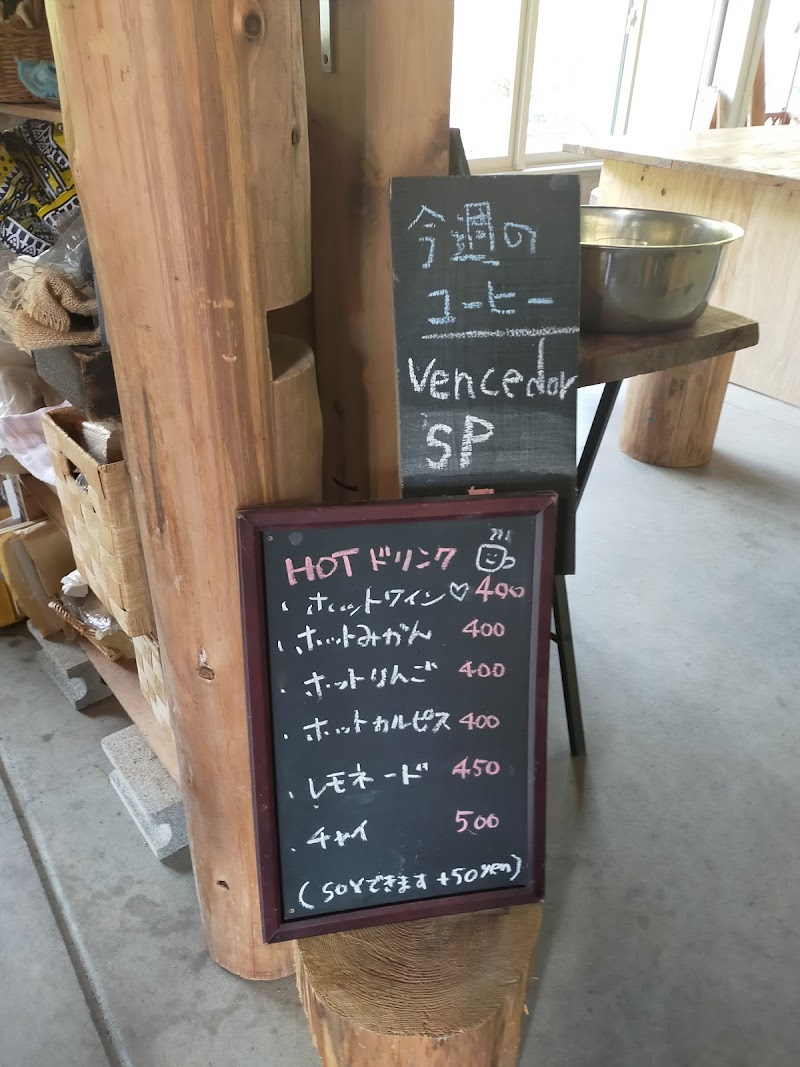 今週の
コーヒー
Vencedor
SP
HOTドリンク
・ホットワイン♡400
・ホットみかん 400
・ホットりんご 400
・ホットカルピス 400
・レモネード 450
・チャイ 500
(SOYできます +50yen)